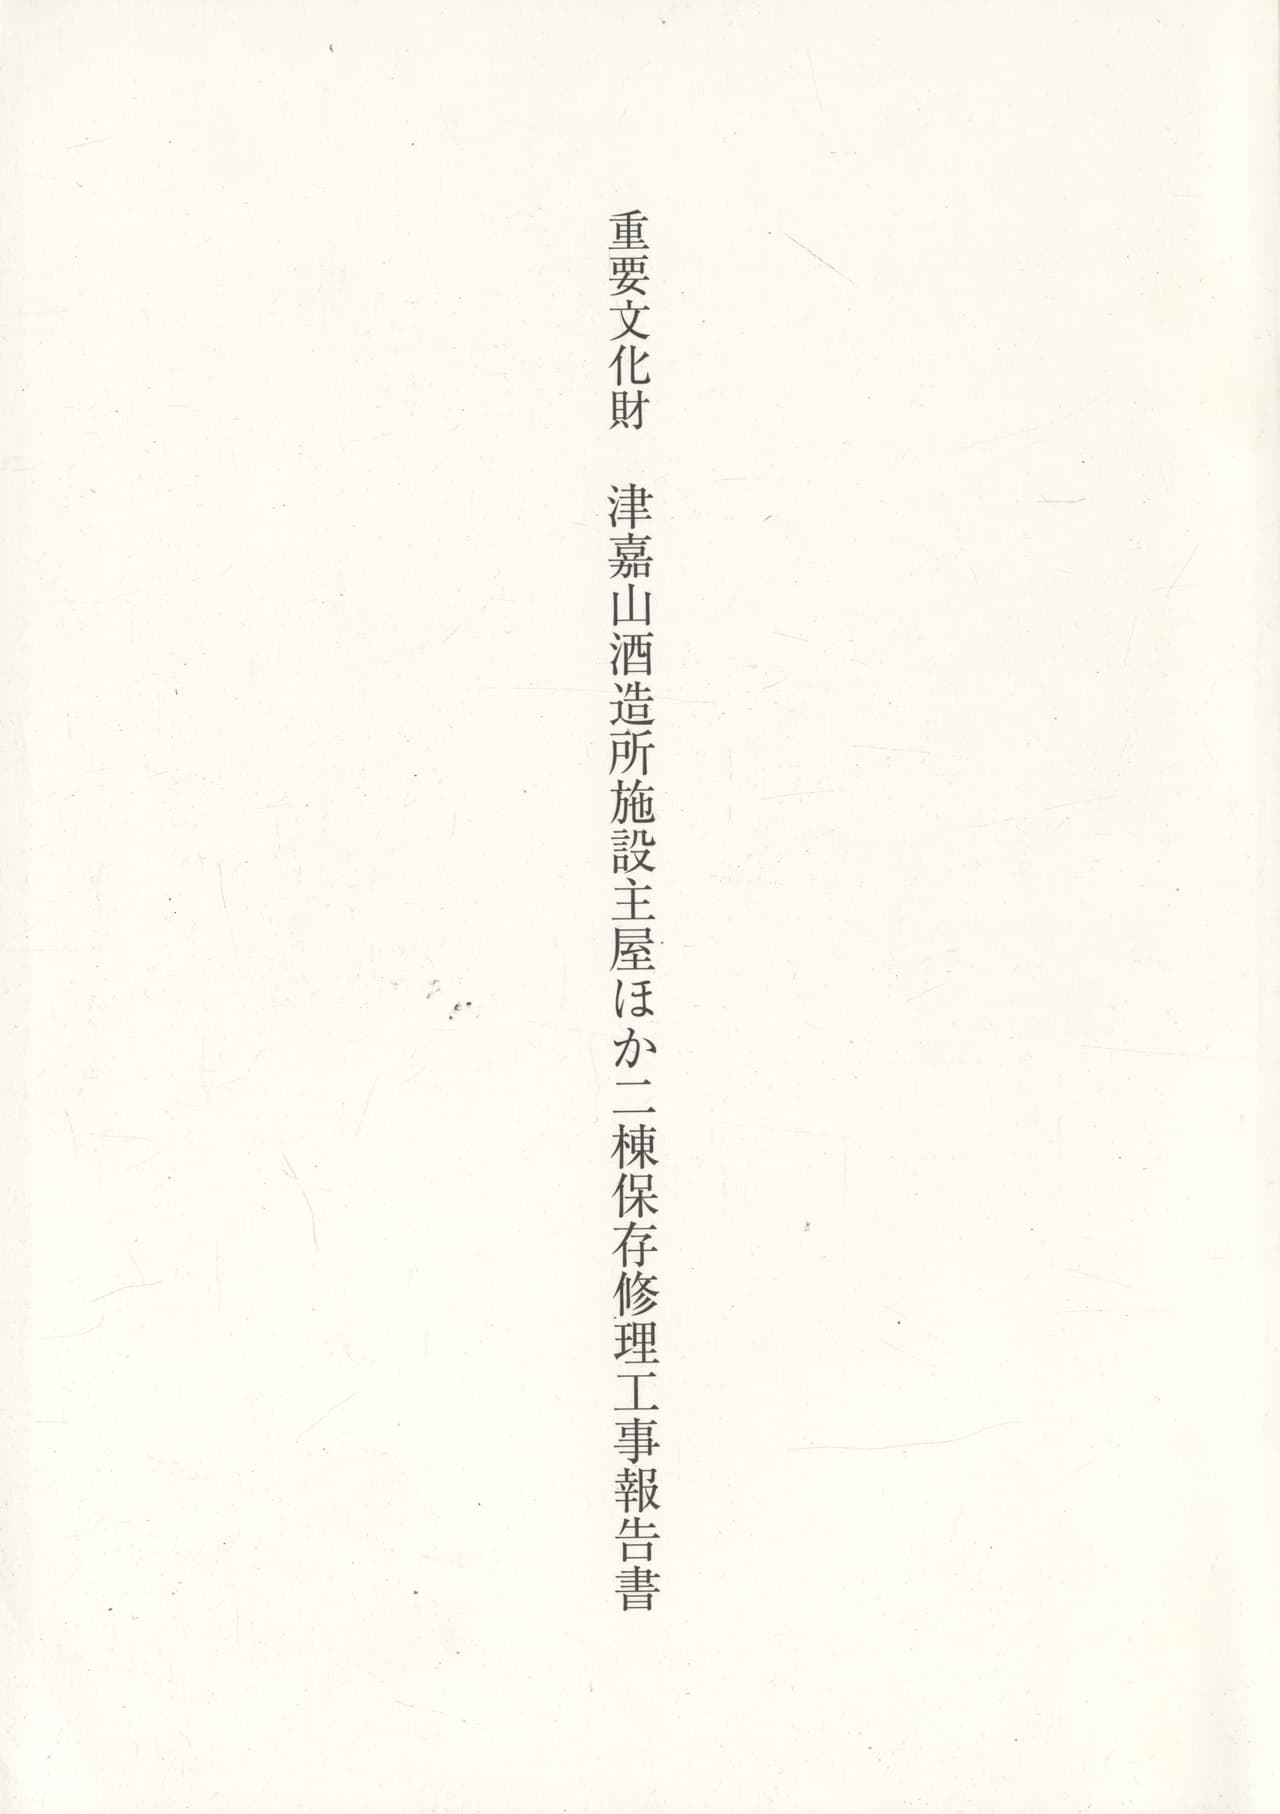 重要文化財　津嘉山酒造所施設主屋ほか二棟保存修理工事報告書